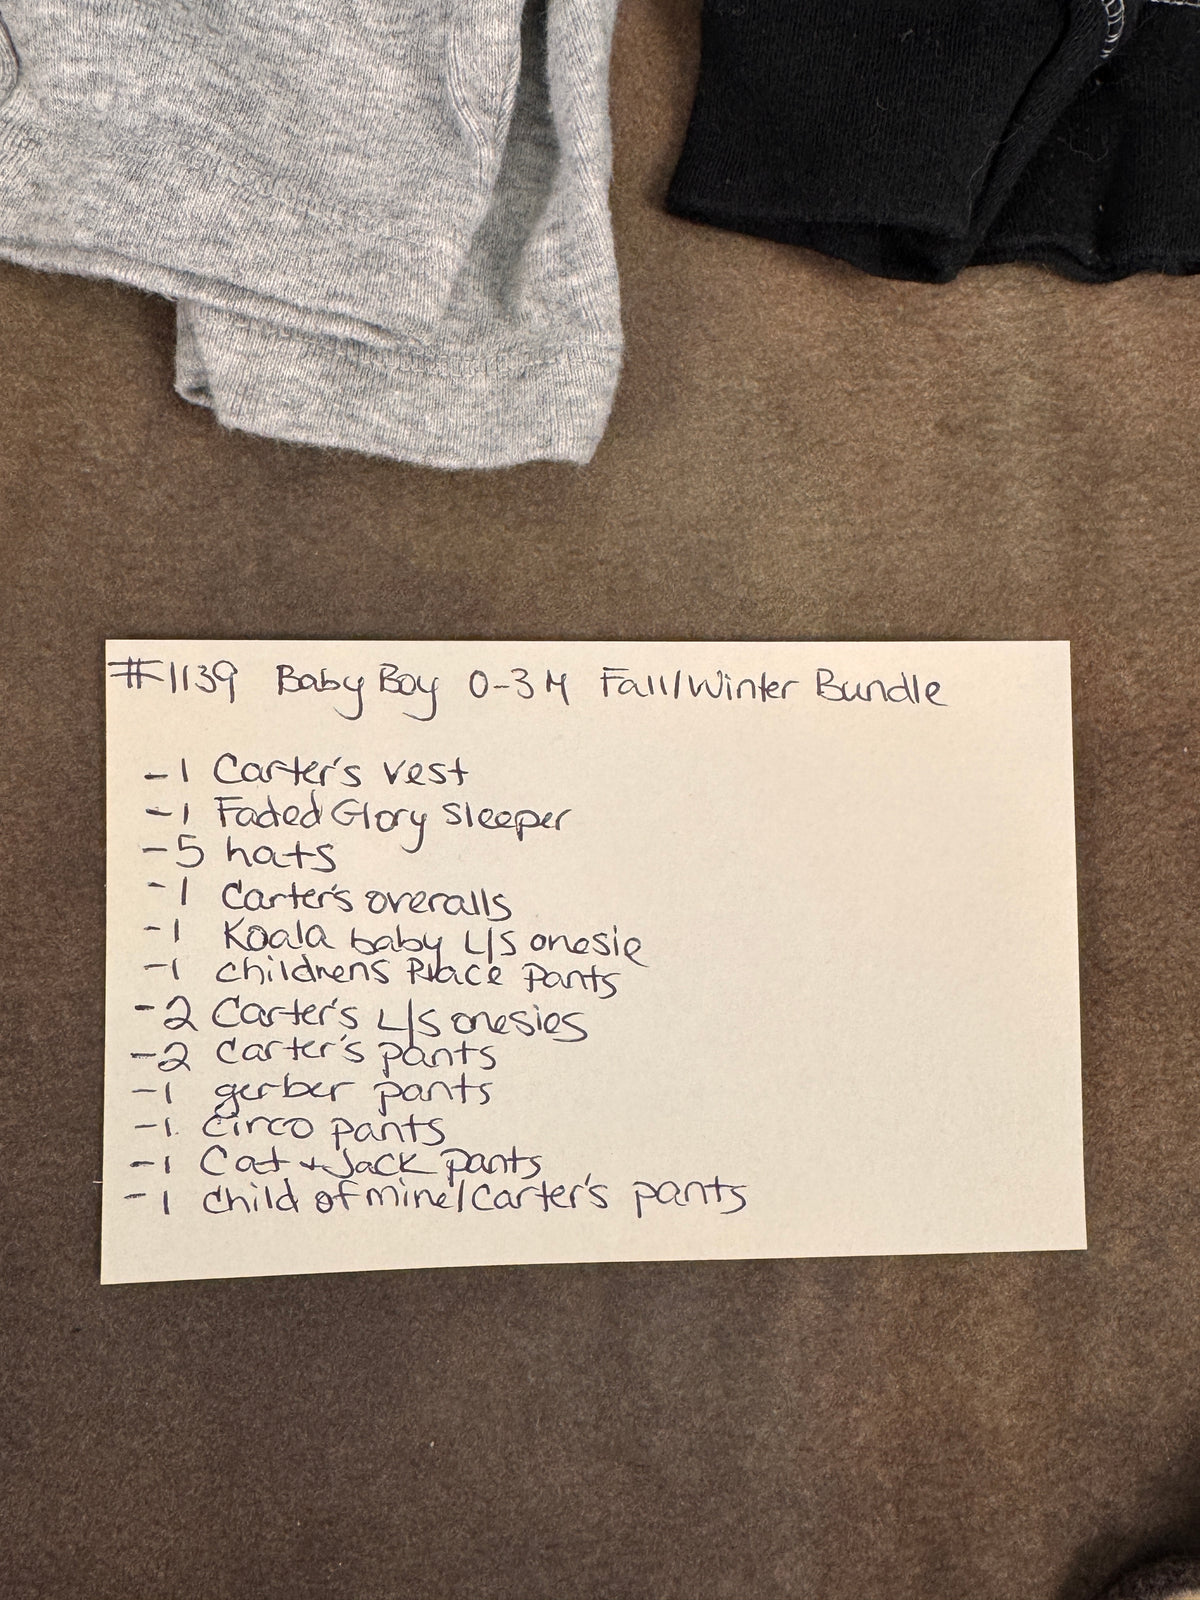 #1139 Baby Boy 0-3M Fall/Winter Bundle
-1 Carter's vest
-1 Faded Glory Sleeper
-5 hats
-1 Carter's overalls
-1 Koala baby L/S onesie
-1 childrens Place Pants
-2 Carter's L/S onesies
-2 Carter's pants
-1 gerber pants
-1 circo pants
-1 Cat + Jack pants
-1 child of mine/Carter's pants